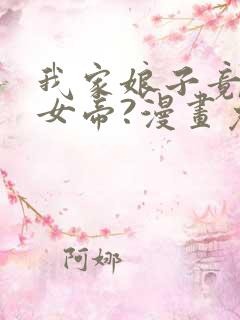 我家娘子竟
女帝?漫畫
阿娜